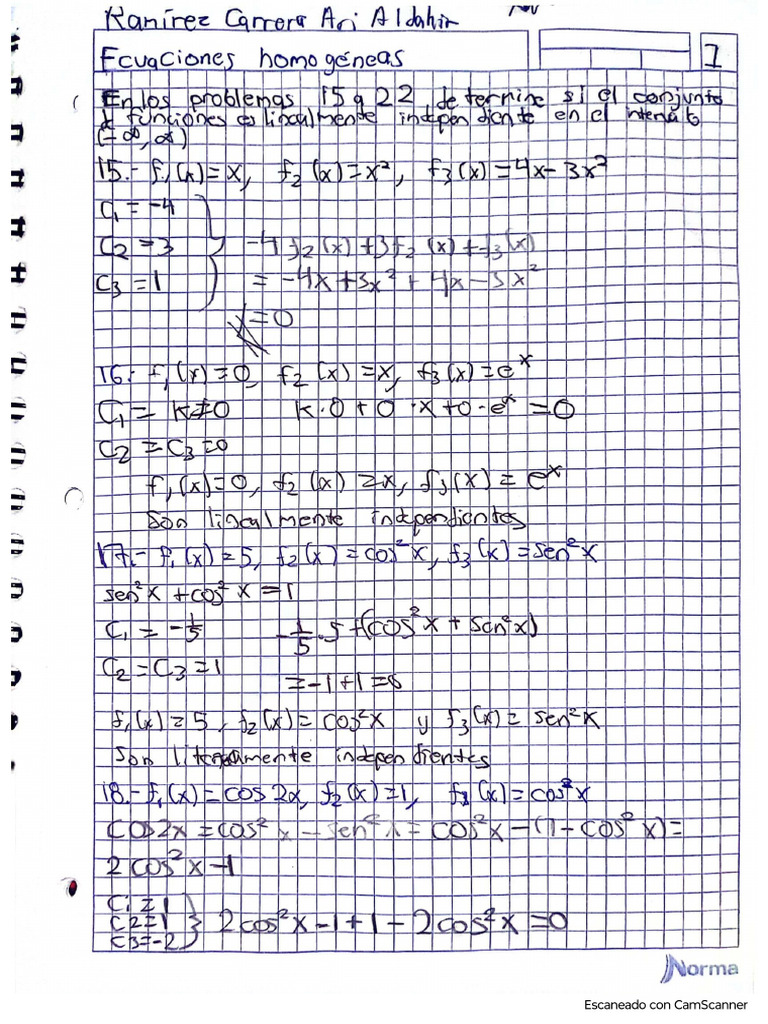 Ramírez Carrera Ari Aldahir
Ecuaciones homogéneas
1
En los problemas 15 a 22 determine si el conjunto
de funciones es linealmente independiente en el intervalo
(-∞, ∞)
15.- f₁(x)=x, f₂(x)=x², f₃(x)=4x-3x²
C₁ = -4
C₂ = 3
C₃ = 1
-4f₂(x)+3f₂(x)+f₃(x)
= -4x+3x²+4x-3x²
=0
16.- f₁(x)=0, f₂(x)=x, f₃(x)=eˣ
C₁ = k≠0 k·0+0·x+0·eˣ=0
C₂ = C₃=0
f₁(x)=0, f₂(x)=x, f₃(x)=eˣ
Son linealmente independientes
17.- f₁(x)=5, f₂(x)=cos²x, f₃(x)=sen²x
sen²x+cos²x=1
C₁ = -1/5
-1/5·5+(cos²x+sen²x)
C₂=C₃=1
=-1+1=0
f₁(x)=5, f₂(x)=cos²x y f₃(x)=sen²x
Son independientes
18.- f₁(x)=cos 2x, f₂(x)=1, f₃(x)=cos²x
Cos2x=cos²x-sen²x=cos²x-(1-cos²x)=
2cos²x-1
C₁=1
C₂=1
C₃=-2
2cos²x-1+1-2cos²x=0
Norma
Escaneado con CamScanner